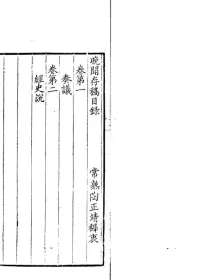 晚聞存稿目錄 常熟陶正靖穉衷
卷第一
奏議
卷第二
經史說